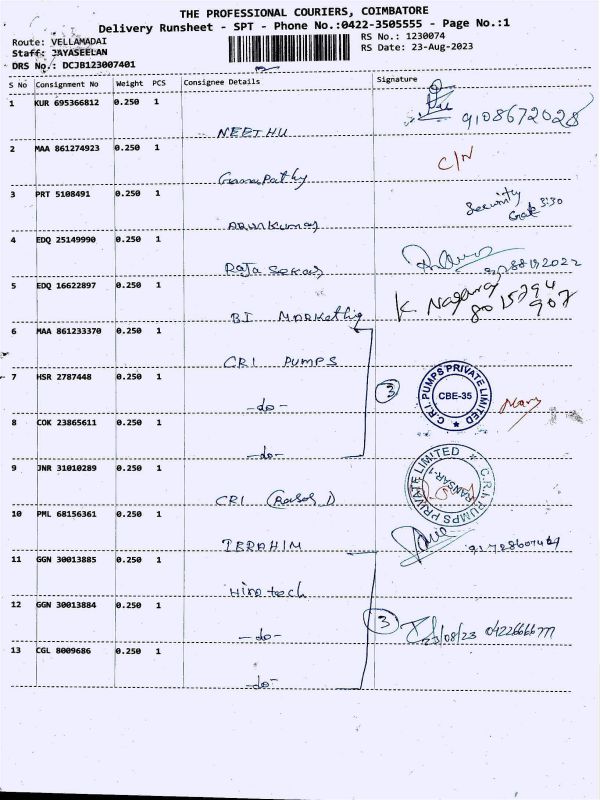 THE PROFESSIONAL COURIERS, COIMBATORE
Delivery Runsheet - SPT - Phone No.:0422-3505555 - Page No.:1
Route: VELLAMADAI
Staff: JAYASEELAN
DRS No.: DCJB123007401
RS No.: 1230074
RS Date: 23-Aug-2023
S No Consignment No Weight PCS Consignee Details Signature
1 KUR 695366812 0.250 1
NEETHU 9108672028
2 MAA 861274923 0.250 1
Ganapathy C/N
3 PRT 5108491 0.250 1
Arunkumar Security Gate 3:30
4 EDQ 25149990 0.250 1
Raja Sekar
5 EDQ 16622897 0.250 1
BI Marketing K. Nagaraj 80 15294 907
6 MAA 861233370 0.250 1
CRI PUMPS
7 HSR 2787448 0.250 1
-do- 3 C.R.I. PUMPS PRIVATE LIMITED CBE-35
8 COK 23865611 0.250 1
-do-
9 JNR 31010289 0.250 1
CRI C.R.I. PUMPS PRIVATE LIMITED
10 PML 68156361 0.250 1
IBRAHIM
11 GGN 30013885 0.250 1
Hinotech
12 GGN 30013884 0.250 1
-do- 3 23/08/23
13 CGL 8009686 0.250 1
-do-